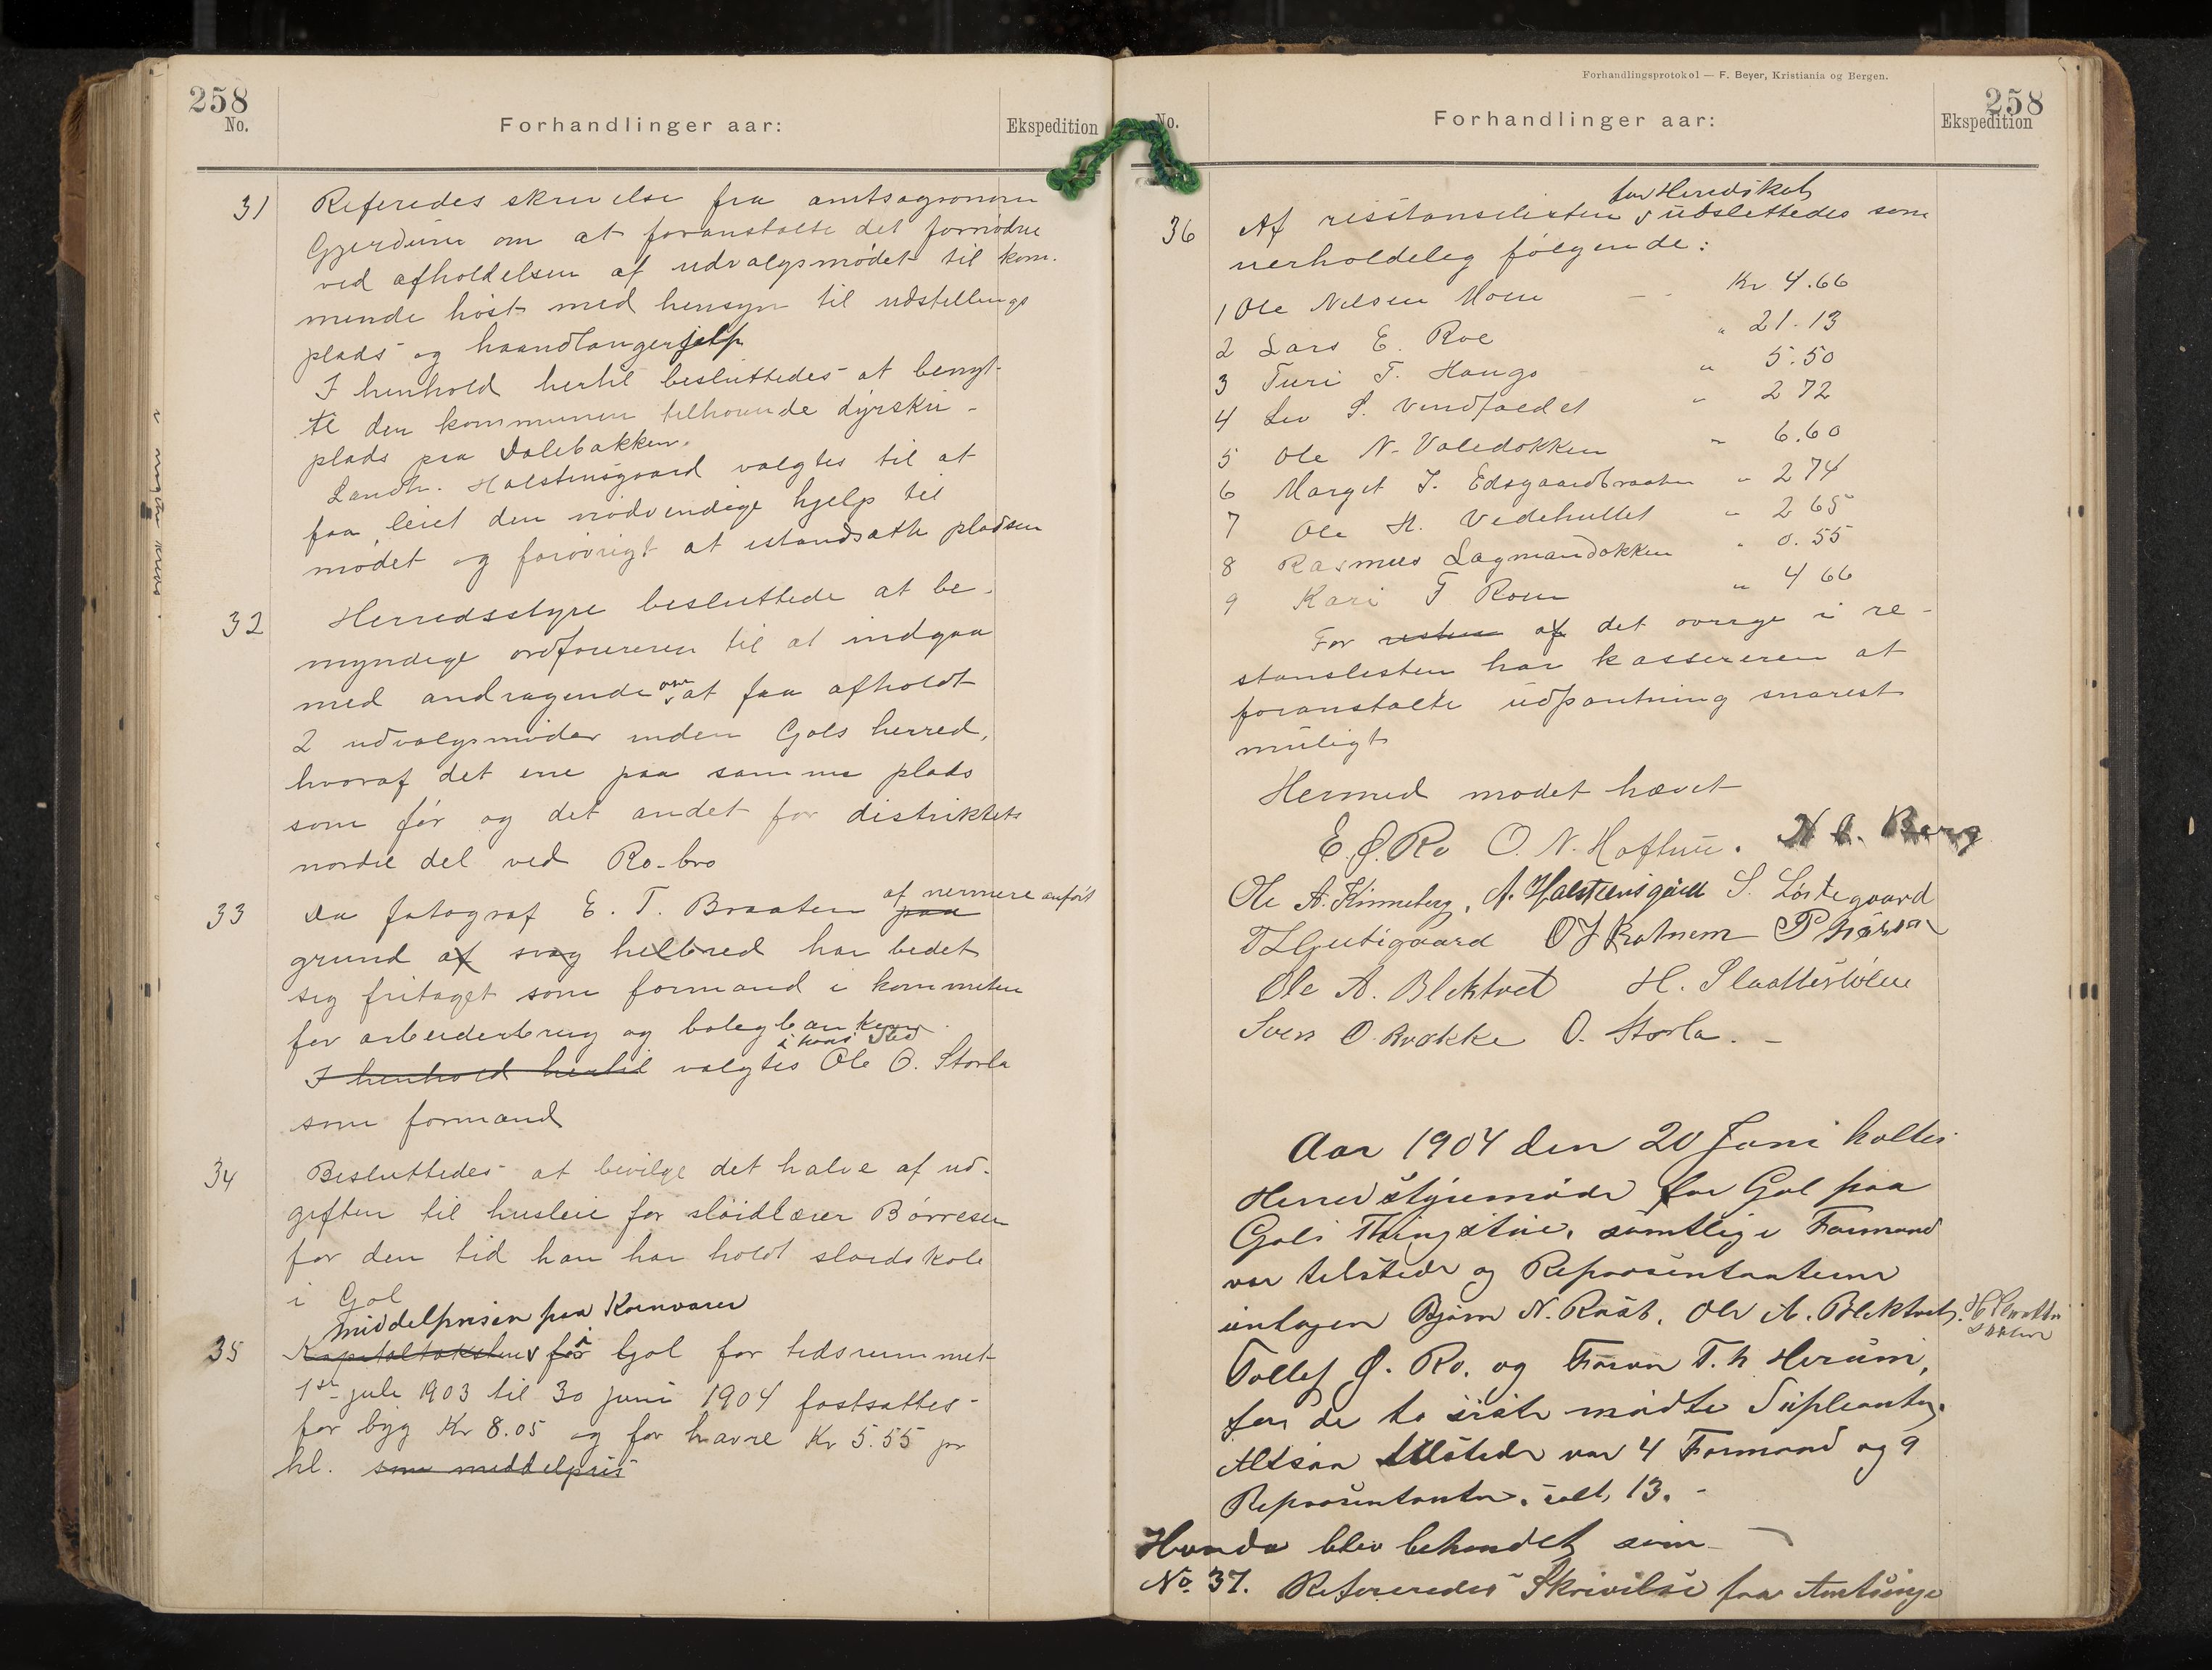 258
No.
Forhandlinger aar:
Ekspedition
31
Referedes skrivelse fra amtsagronom
Gjerdum om at foranstalte det fornødne
ved afholdelsen af udvalgsmødet til kom-
mende høst med hensyn til udstillings
plads og haandlangerhjelp
I henhold hertil besluttedes at benyt-
te den kommunen tilhørende dyrsku-
plads paa Dalebakken.
Landh. Halstensgaard valgtes til at
faa leiet den nødvendige hjelp til
mødet og forøvrigt at istandsætte pladsen
32
Herredsstyre besluttede at be-
myndige ordføreren til at indgaa
med andragende om at faa afholdt
2 udvalgsmøder inden Gols herred,
hvoraf det ene paa samme plads
som før og det andet for distriktets
nordre del ved Ro-bro
33
Da fotograf E. T. Braaten paa af nermere anført
grund af svag helbred har bedet
sig fritaget som formand i kommiteen
for arbeiderbrug og boligbanken
I henhold hertil valgtes i hans sted Ole O. Storla
som formand
34
Besluttedes at bevilge det halve af ud-
giften til husleie for sløidlærer Børresen
for den tid han har holdt sløidskole
i Gol
Middelprisen paa Kornvarer
35
Kapitaltaksten for i Gol for tidsrummet
1ste juli 1903 til 30 juni 1904 fastsattes
for byg Kr 8.05 og for havre Kr 5.55 pr
hl. som middelpris
Forhandlingsprotokol — F. Beyer, Kristiania og Bergen.
258
No.
Forhandlinger aar:
Ekspedition
for Herredskat
36
Af restanselisten udslettedes som
uerholdelig følgende:
1 Ole Nilsen Moen Kr 4.66
2 Lars E. Roe " 21.13
3 Turi T. Haugo " 5.50
4 Liv S. Vindfaldet " 2 72
5 Ole N. Valedokken " 6.60
6 Marget J. Edsgaardbraaten " 2 74
7 Ole H. Vedehullet " 2 65
8 Rasmus Lagmandokken " 0.55
9 Kari T Roen " 4 66
For resten af det øvrige i re-
stanslisten har kassereren at
foranstalte udpantning snarest
muligt
Hermed mødet hævet
E. O. Ro O. N. Hoftun. N. O. Berg
Ole A. Kinneberg, A. Halstensgård S. Løstegaard
T L Gutigaard O J Rotnem P Thorson
Ole A. Blektvet H. Slaattestølen
Sven O. Brække O. Storla. -
Aar 1904 den 20 Juni holtes
Herredstyremøde for Gol paa
Gols Thingstue, samtlige Formænd
var tilstede og Repræsentanterne
untagen Bjørn N. Raab, Ole A. Blektvet, H. Slaatte
stølen
Tollef O. Ro. og Torsen T. h Herum,
for de to siste mødte Supleanter.
Altsaa tilstede var 4 Formænd og 9
Repræsentanter. ialt 13. -
Hvorda blev behandlet som
No. 37. Refereredes Skrivilse fra Amtsinge